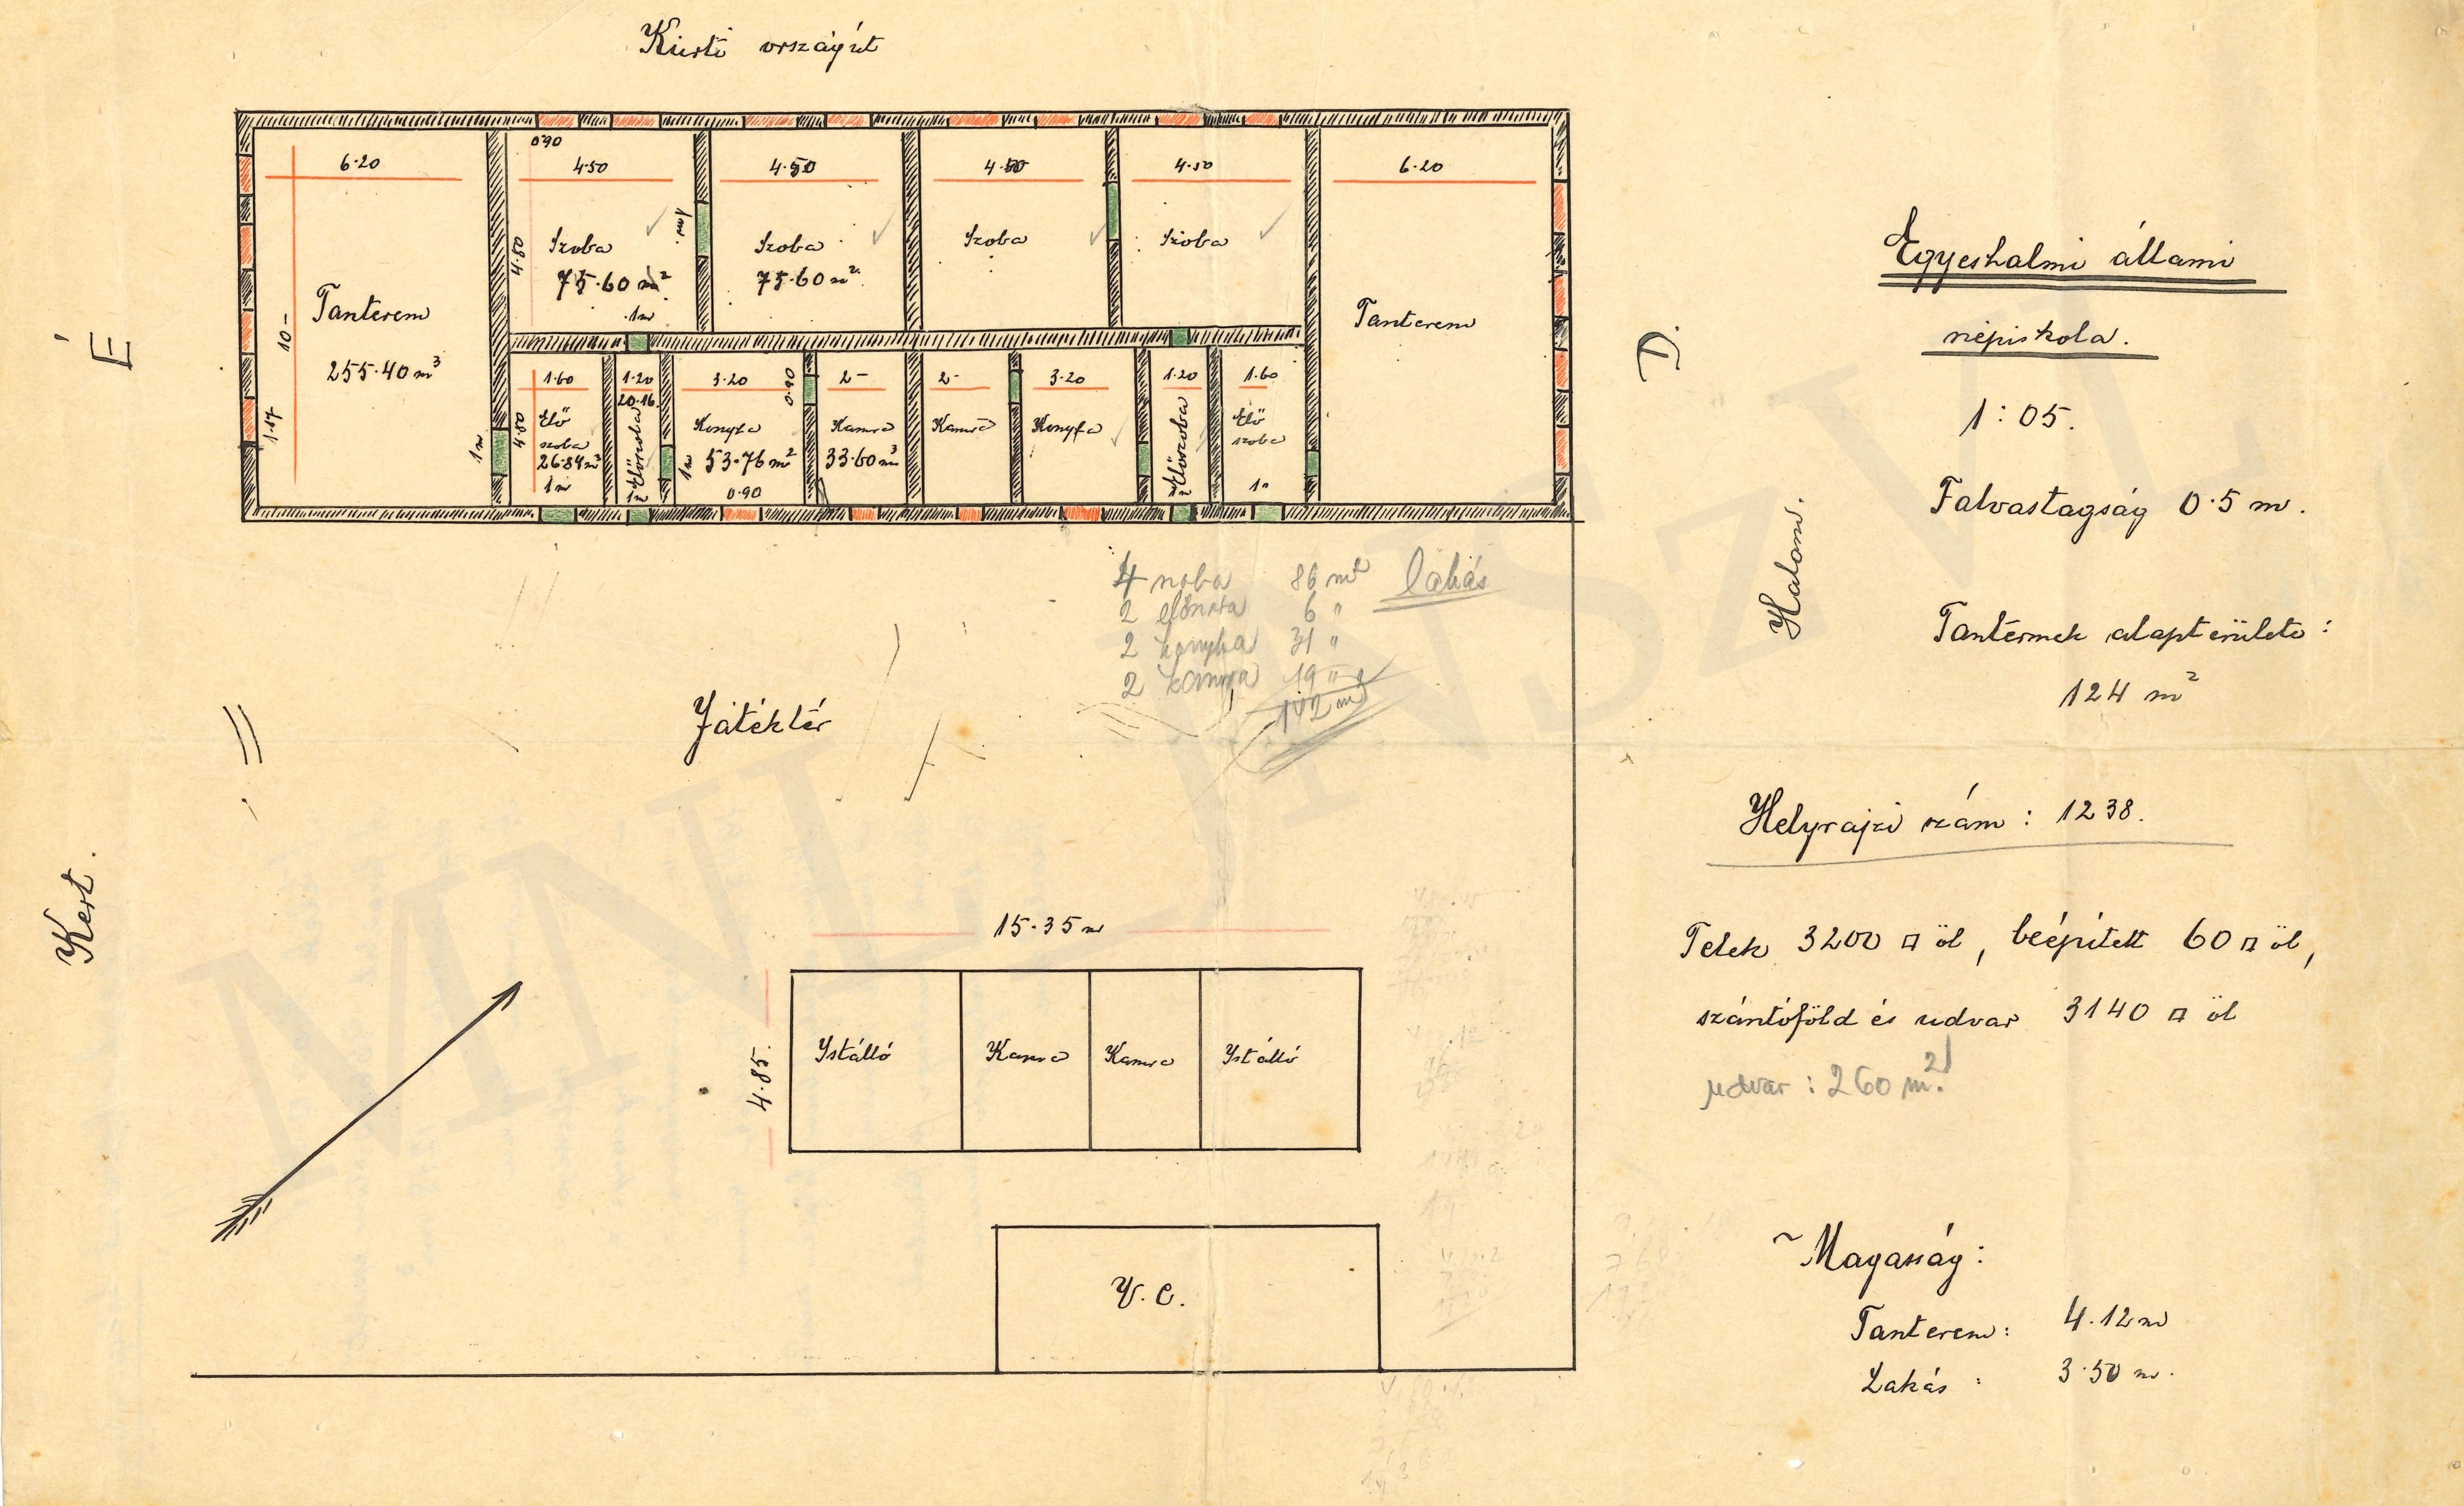 Kürti országút
É
D.
6·20
0·90
4·50
4·50
4·50
4·50
6·20
1m
4·80
Szoba
75·60 m²
1m
Szoba
75·60 m²
Szoba
Szoba
Tanterem
255·40 m³
10-
1·07
Tanterem
1·60
1·20
20·16
3·20
0·90
2-
2-
3·20
1·20
1·60
1m
4·80
Elő
szoba
26·84 m³
1m
Előszoba
1m
1m
Konyha
53·76 m²
0·90
Kamra
33·60 m³
Kamra
Konyha
Előszoba
1m
Elő
szoba
1m
4 szoba 86 m² lakás
2 előszoba 6 "
2 konyha 31 "
2 kamra 19 "
142 m²
Játéktér
Kert.
Halom.
15·35 m
4·85.
Istálló
Kamra
Kamra
Istálló
V. C.
Egyeshalmi állami
népiskola.
1 : 05.
Falvastagság 0·5 m.
Tantermek alapterülete:
124 m²
Helyrajzi szám: 1238.
Telek 3200 □ öl, beépített 60 □ öl,
szántóföld és udvar 3140 □ öl
udvar : 260 m²
Magasság:
Tanterem: 4·12 m
Lakás : 3·50 m.
MNL JNSZVL